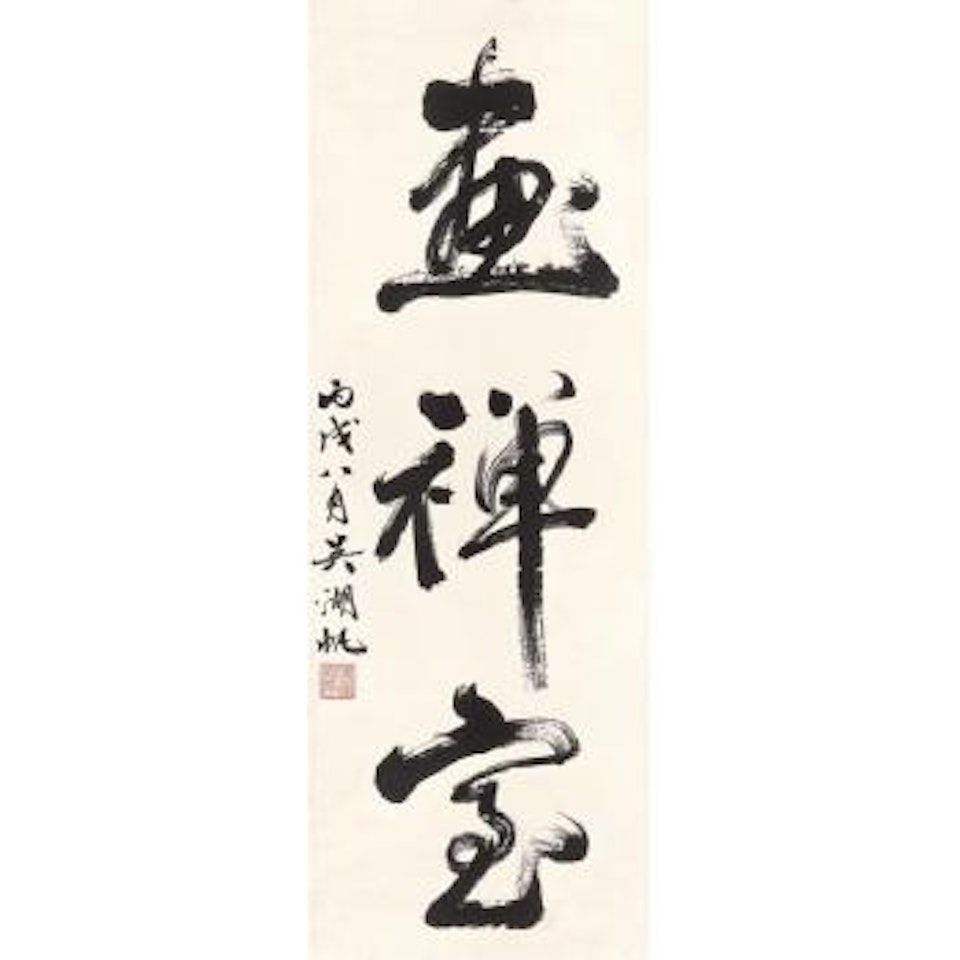 畫禪室
丙戌八月吳湖帆